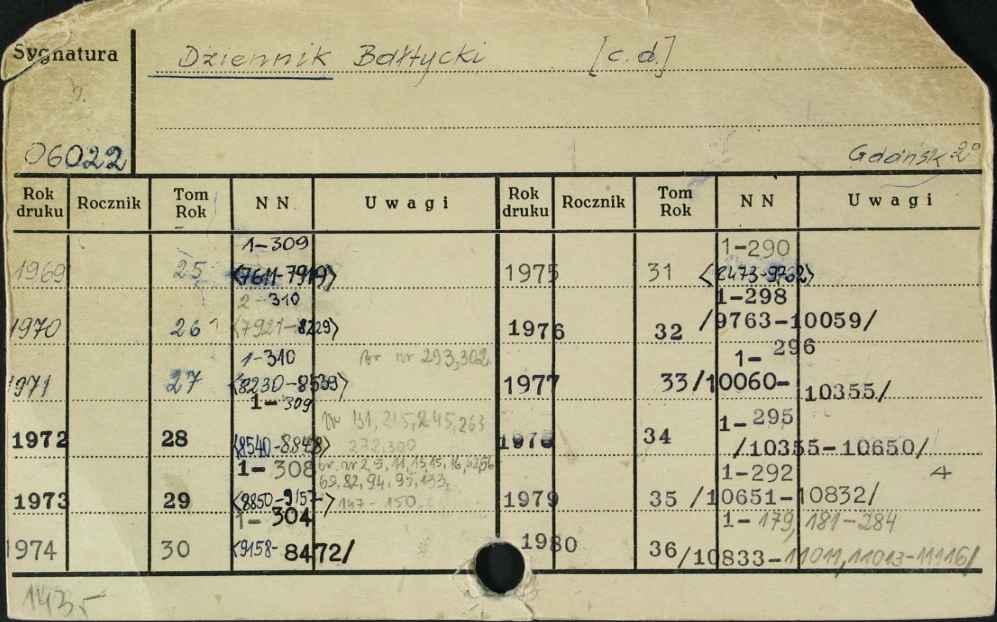 Sygnatura
Dziennik Bałtycki [c.d.]
06022
Gdańsk 2°
Rok druku Rocznik Tom Rok NN Uwagi Rok druku Rocznik Tom Rok NN Uwagi
1-309 1-290
1969 25 <7611-7919> 1975 31 <8473-9762>
2-310 1-298
1970 26 <7921-8229> 1976 32 /9763-10059/
1-310 Br nr 293,302 1-296
1971 27 <8230-8539> 1977 33 /10060-10355/
1-309 1-295
1972 28 <8540-8848> 34 /10355-10650/
232,300
1-308 1-292
69,82,94,95,133,
1973 29 <8850-9157-> 147-150 1979 35 /10651-10832/ 4
1-304 1-179,181-284
1974 30 <9158-8472/ 1980 36 /10833-11011,11013-11116/
1435